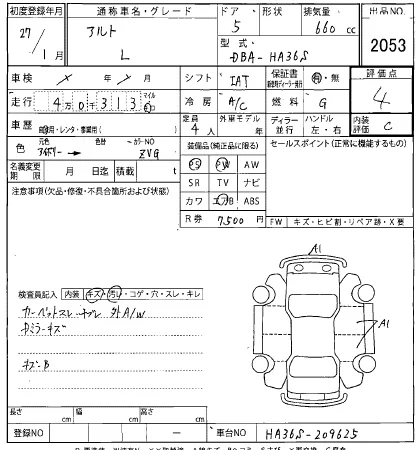 初度登録年月 通称車名・グレード ドア 形状 排気量 出品NO
27/1月 アルト L 5 660 cc 2053
型式 DBA-HA36S
車検 シフト IAT 保証書 有・無 評価点 4
走行 4万0千313 マイル 冷房 A/C 燃料 G 内装評価 C
車歴 自家用・レンタ・事業用( ) 定員 4人 外車モデル 年 ディーラー 並行 ハンドル 左・右
色 元色 色替 カラーNO ZVG
装備品(純正品に限る) セールスポイント(正常に機能するもの)
名義変更期限 月 日迄 積載 t
PS PW AW
SR TV ナビ
カワ エアB ABS
R券 7500円
注意事項(欠品・修復・不具合箇所および状態)
FW キズ・ヒビ割・リペア跡・X要
A1
A1
検査員記入 内装 キズ・汚レ・コゲ・穴・スレ・キレ
カーペットスレ 外A/W
ミラーキズ
キズ・B
長さ cm 幅 cm 高さ cm
登録NO − 車台NO HA36S-209625